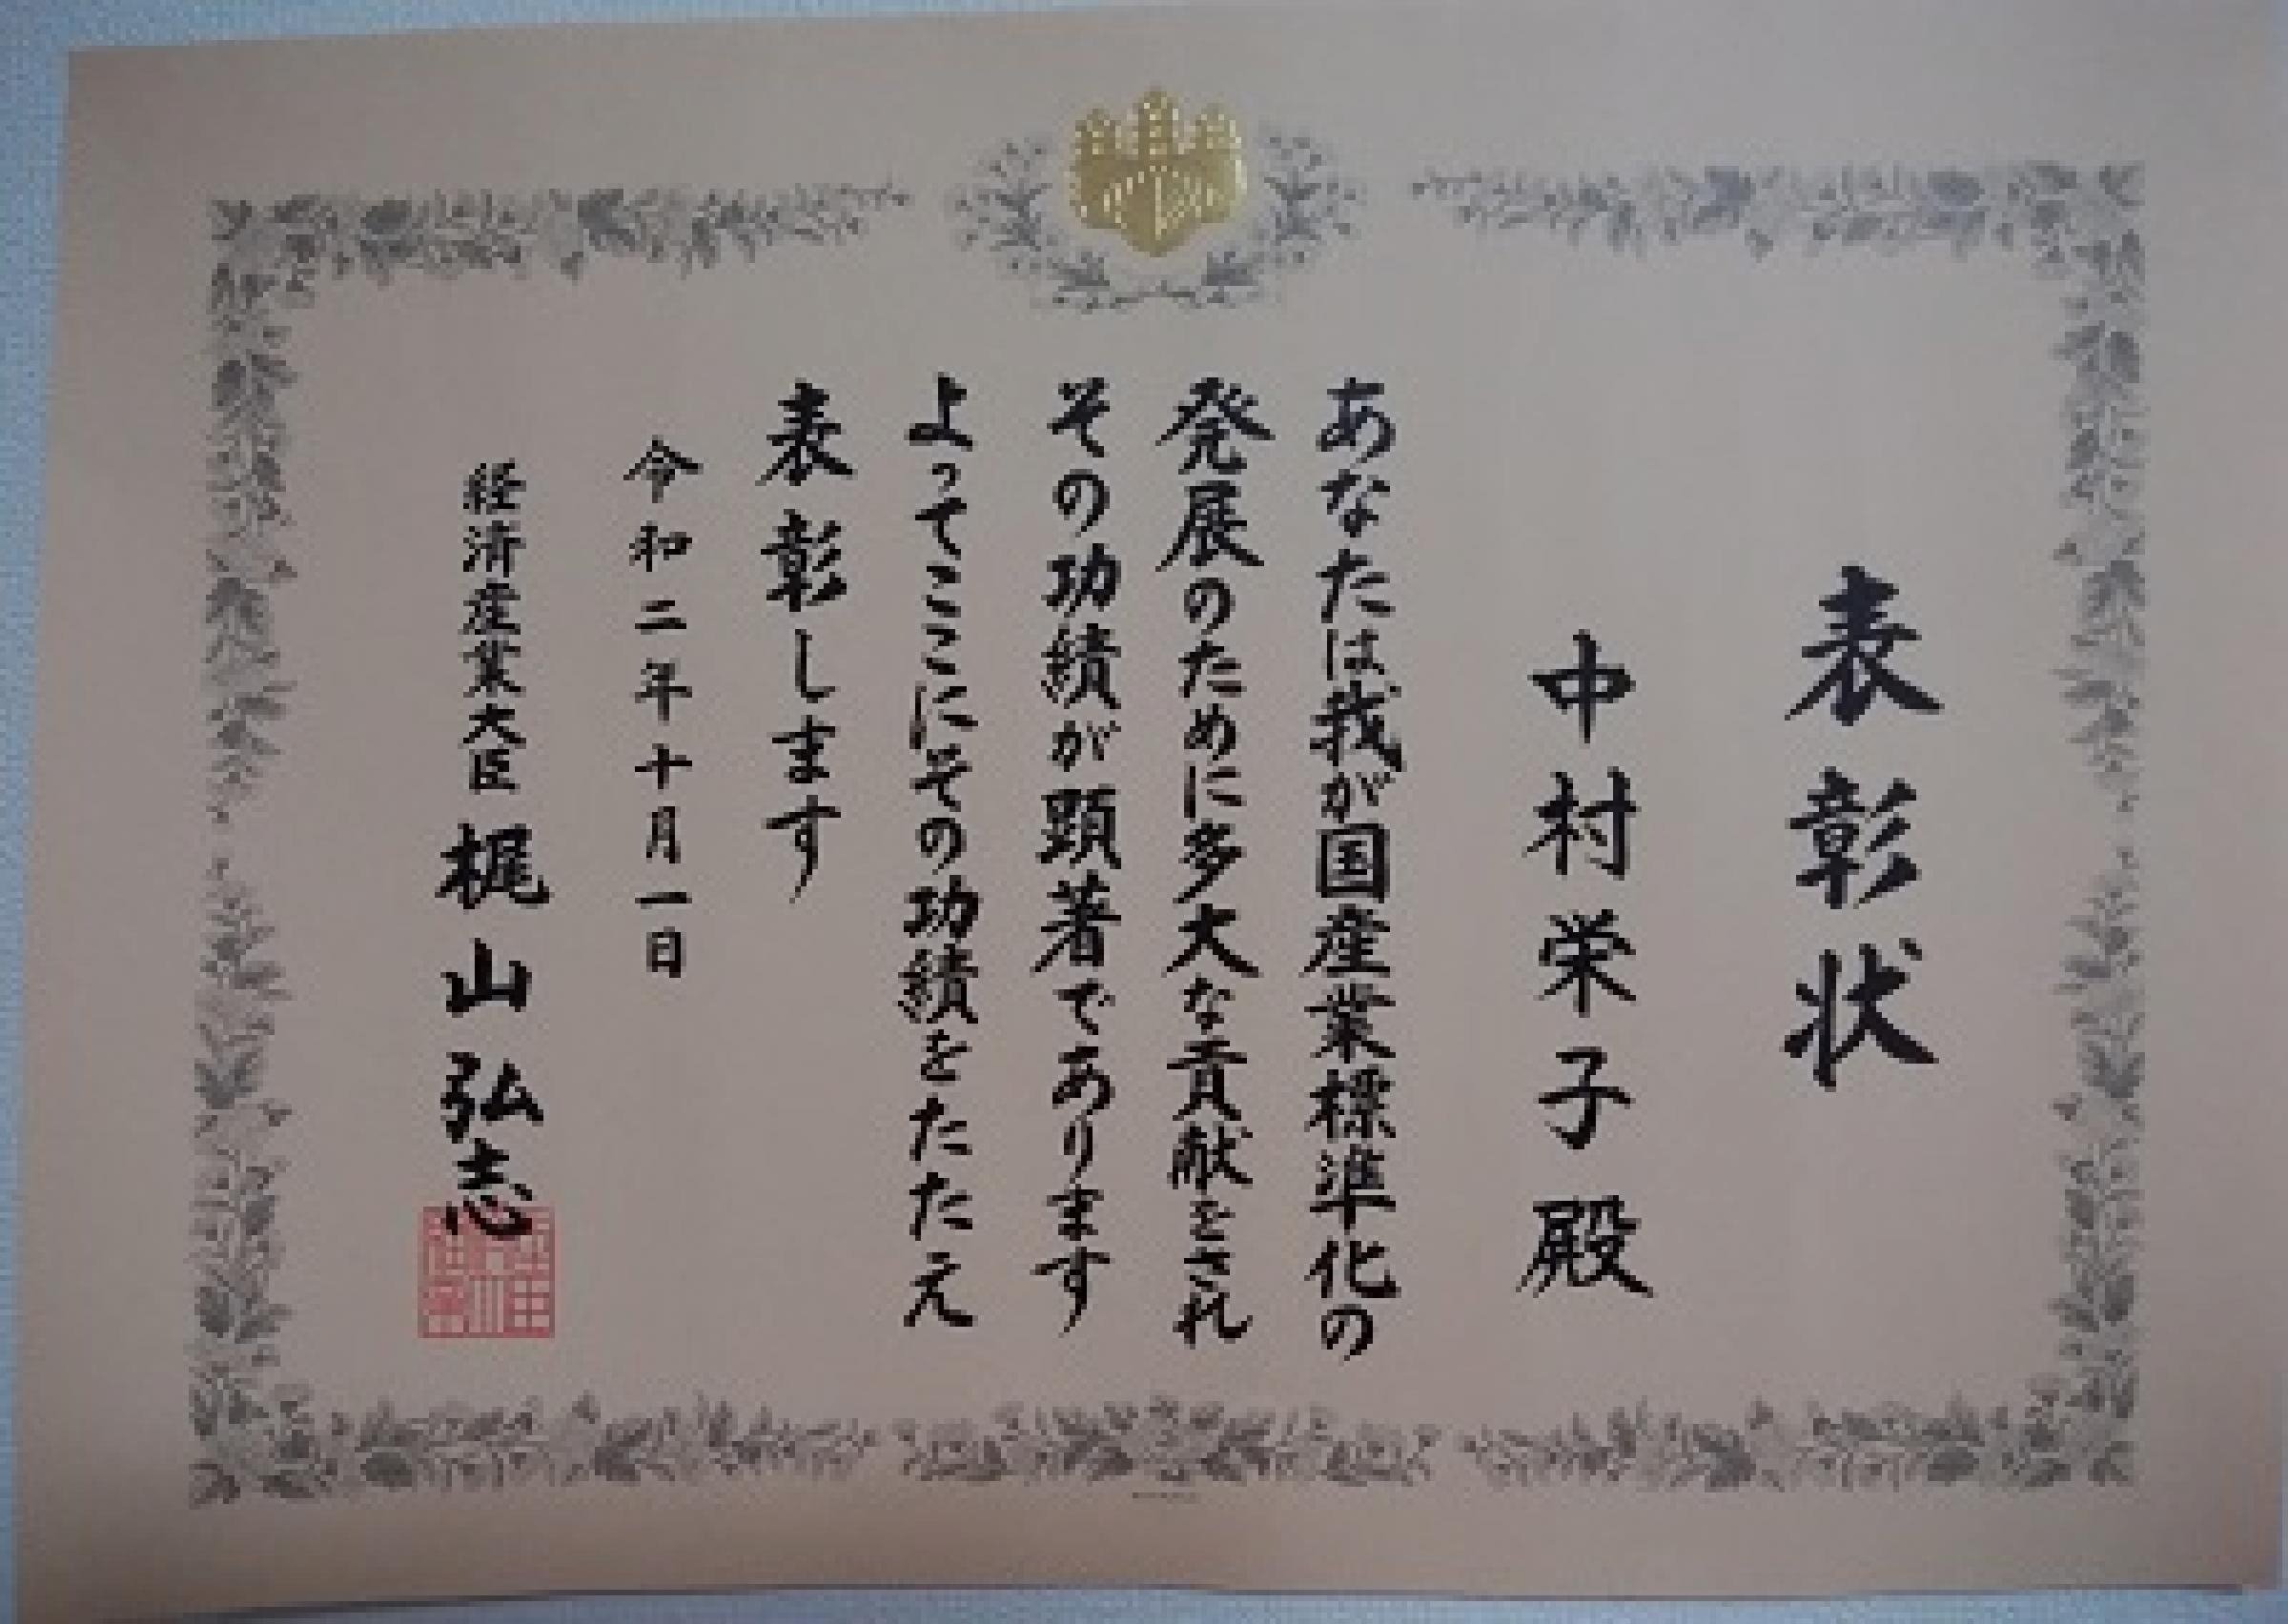 表彰状
中村栄子殿
あなたは我が国産業標準化の
発展のために多大な貢献をされ
その功績が顕著であります
よってここにその功績をたたえ
表彰します
令和二年十月一日
経済産業大臣 梶山弘志